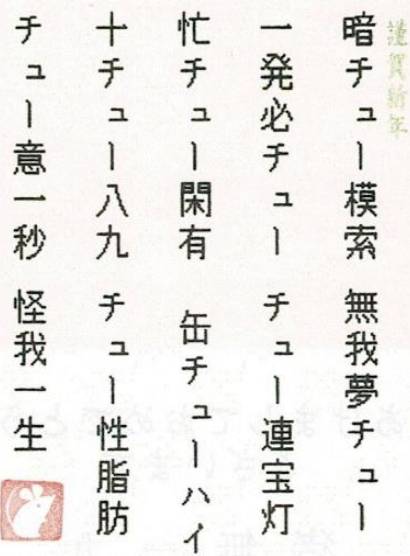 謹賀新年
暗チュー模索 無我夢チュー
一発必チュー チュー連宝灯
忙チュー閑有 缶チューハイ
十チュー八九 チュー性脂肪
チュー意一秒 怪我一生